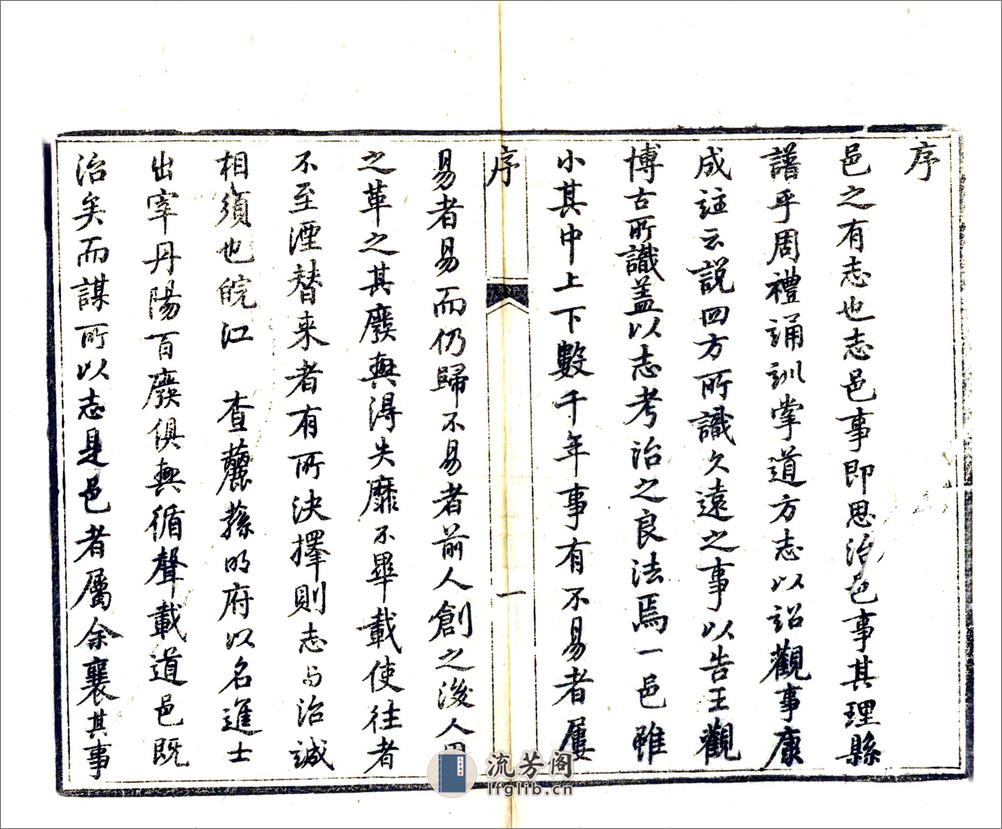 序
邑之有志也志邑事即思治邑事其理縣
譜乎周禮誦訓掌道方志以詔觀事康
成註云說四方所識久遠之事以告王觀
博古所識盖以志考治之良法焉一邑雖
小其中上下數千年事有不易者屢
序
一
易者易而仍歸不易者前人創之後人
之革之其廢興得失靡不畢載使往者
不至湮替来者有所決擇則志与治誠
相須也皖江 查蘓蓀明府以名進士
出宰丹陽百廢俱興循聲載道邑既
治矣而謀所以志是邑者屬余襄其事
流芳阁
lfglib.cn